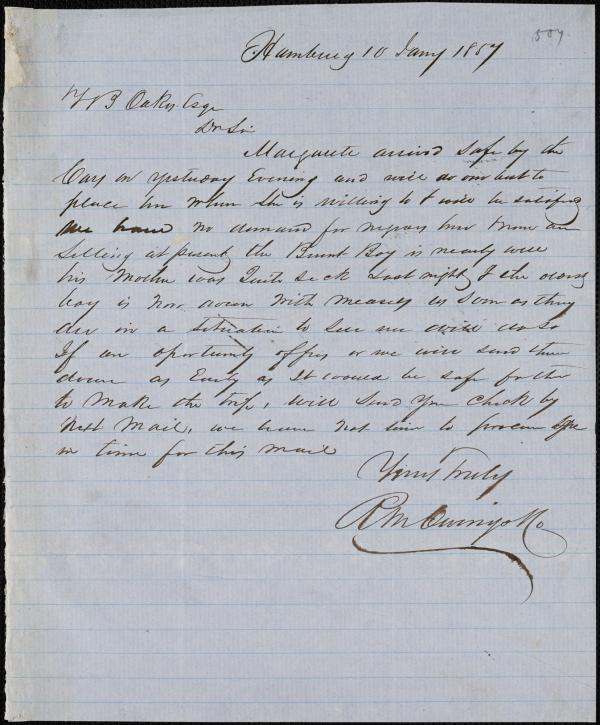 557.
Hamburg 10 Jany 1857
Z B Oakes Esqr
Dr Sir
Margarete arrived Safe by the
Cars on yestuday Evening and will do our best to
place her Where She is willing to & will be satisfied
we have no demand for negroes here None are
Selling at present, the Burnt Boy is nearly well
his Mother was Quite Sick Last night, & the
boy is Now down with measels as soon as they
are in a Situation to Sell we will do so
If an oportunity offers or we will send them
down as Early as It would be safe for the
to Make the trip, will Send You Check by
Next Mail, we have not time to procure
in time for this mail
Yours Truly
R M Owings & Co